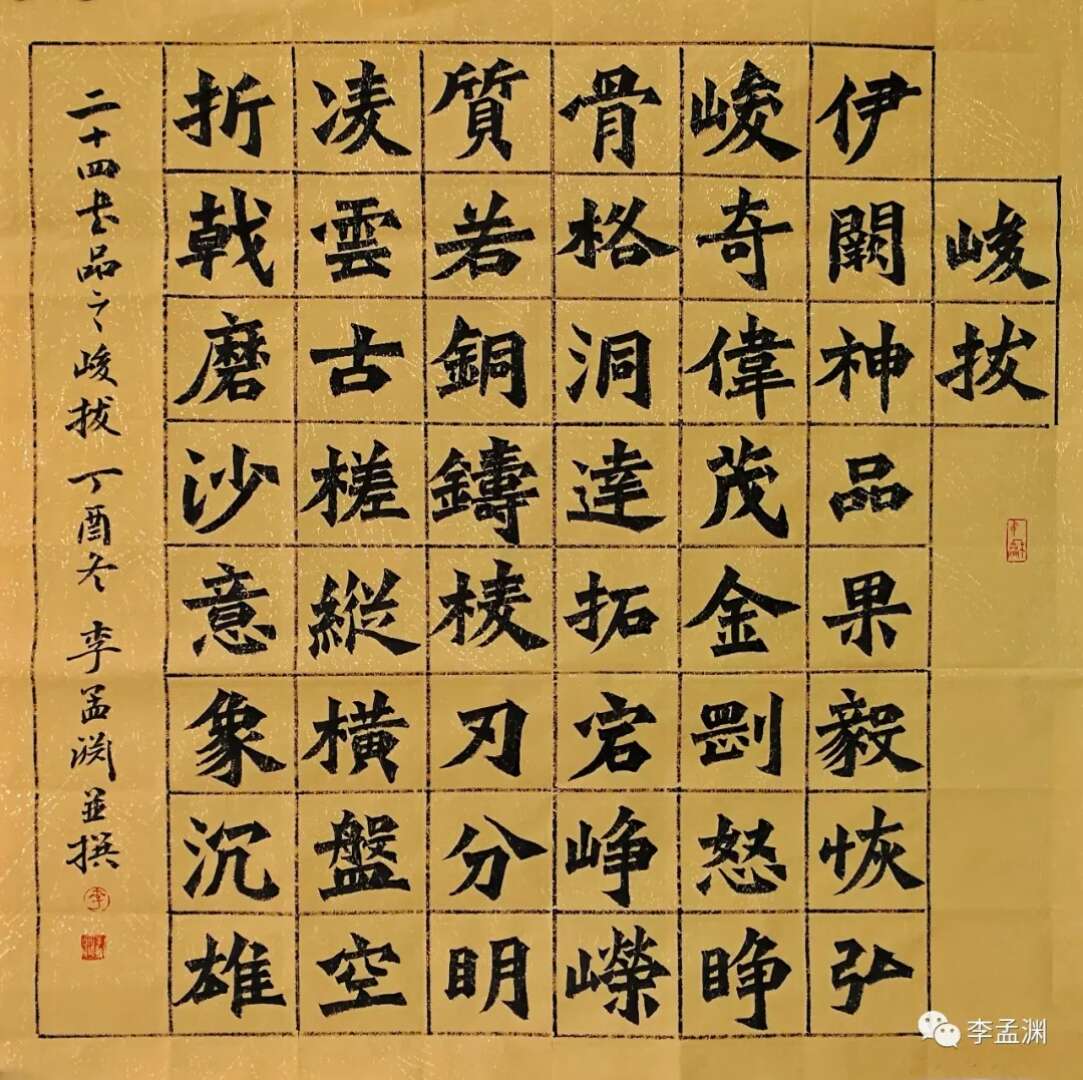 峻拔
伊闕神品果毅恢弘
峻奇偉茂金剛怒睁
骨格洞達拓宕峥嶸
質若銅鑄棱刃分明
凌雲古槎縱横盤空
折戟磨沙意象沉雄
二十四书品之峻拔 丁酉冬 李孟渊並撰
李孟渊